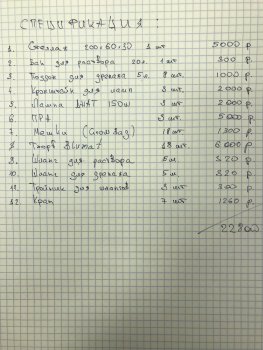 СПЕЦИФИКАЦИЯ:
1. Стеллаж 200х60х30 1 шт 5000 р.
2. Бак для раствора 20л. 1 шт 300 р.
3. Поддон для дренажа 5л. 2 шт. 1000 р.
4. Кронштейн для ламп 3 шт. 2000 р.
5. Лампа ДНАТ 150W 3 шт. 2000 р.
6. ПРА 3 шт. 5000 р.
7. Мешки (Growbag) 18 шт. 1300 р.
8. Blumat 18 шт. 6000 р.
9. Шланг для раствора 5м. 320 р.
10. Шланг для дренажа 5м. 320 р.
11. Тройник для шлангов 3 шт 300 р.
12. Кран 7 шт 1260 р.
22800